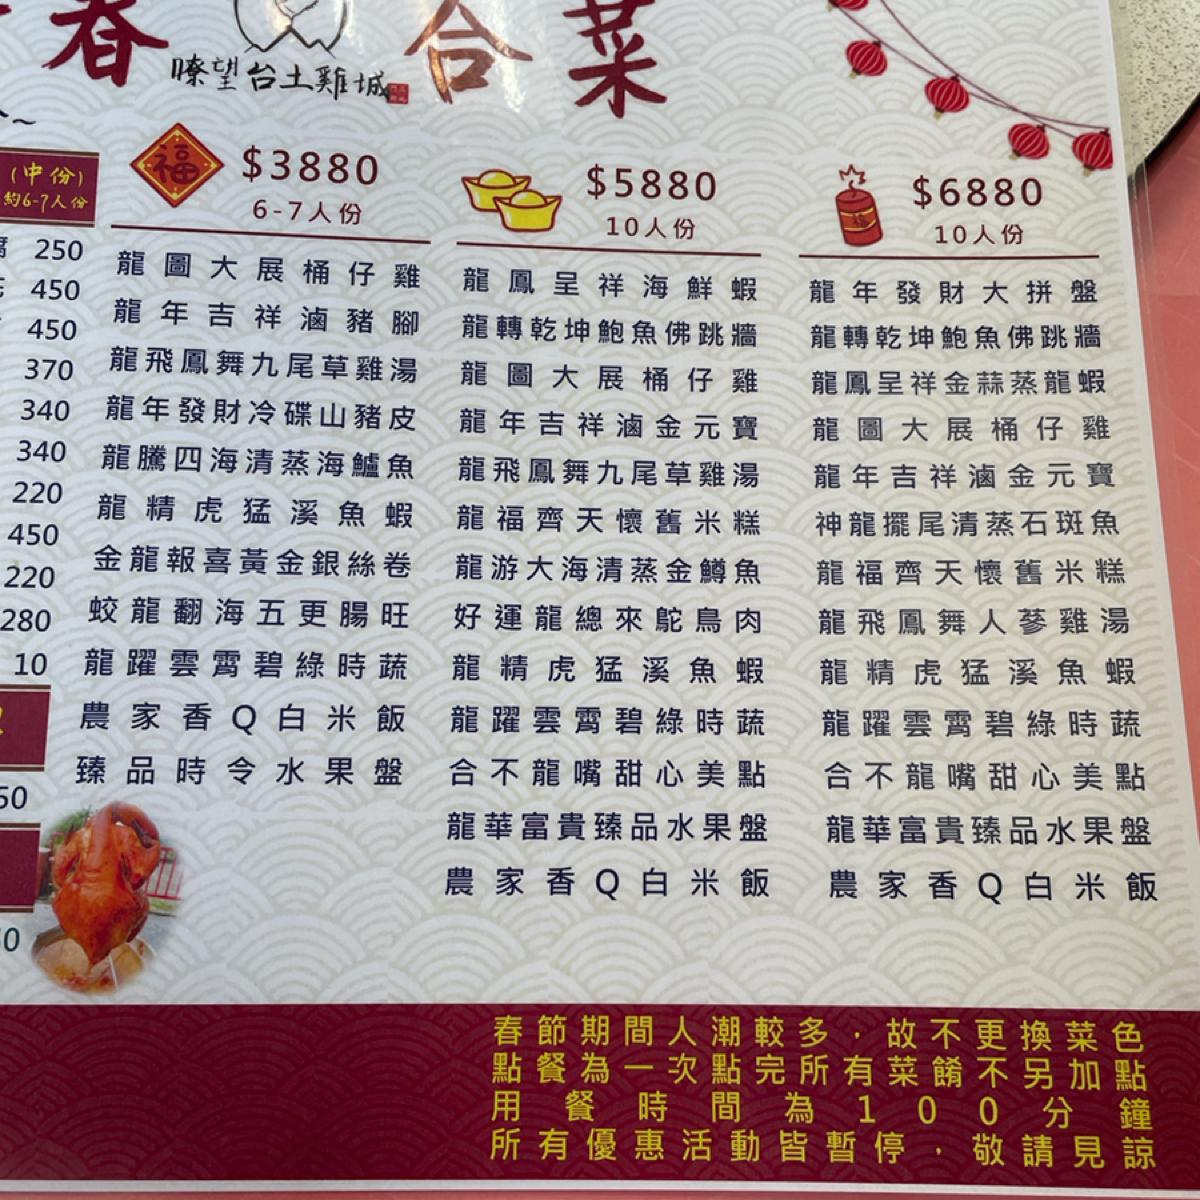 春
合菜
瞭望台土雞城
(中份)
約6-7人份
250
450
450
370
340
340
220
450
220
280
10
福
$3880
6-7人份
龍圖大展桶仔雞
龍年吉祥滷豬腳
龍飛鳳舞九尾草雞湯
龍年發財冷碟山豬皮
龍騰四海清蒸海鱸魚
龍精虎猛溪魚蝦
金龍報喜黃金銀絲卷
蛟龍翻海五更腸旺
龍躍雲霄碧綠時蔬
農家香Q白米飯
臻品時令水果盤
$5880
10人份
龍鳳呈祥海鮮蝦
龍轉乾坤鮑魚佛跳牆
龍圖大展桶仔雞
龍年吉祥滷金元寶
龍飛鳳舞九尾草雞湯
龍福齊天懷舊米糕
龍游大海清蒸金鱒魚
好運龍總來鴕鳥肉
龍精虎猛溪魚蝦
龍躍雲霄碧綠時蔬
合不龍嘴甜心美點
龍華富貴臻品水果盤
農家香Q白米飯
$6880
10人份
龍年發財大拼盤
龍轉乾坤鮑魚佛跳牆
龍鳳呈祥金蒜蒸龍蝦
龍圖大展桶仔雞
龍年吉祥滷金元寶
神龍擺尾清蒸石斑魚
龍福齊天懷舊米糕
龍飛鳳舞人蔘雞湯
龍精虎猛溪魚蝦
龍躍雲霄碧綠時蔬
合不龍嘴甜心美點
龍華富貴臻品水果盤
農家香Q白米飯
春節期間人潮較多，故不更換菜色
點餐為一次點完所有菜餚不另加點
用餐時間為100分鐘
所有優惠活動皆暫停，敬請見諒